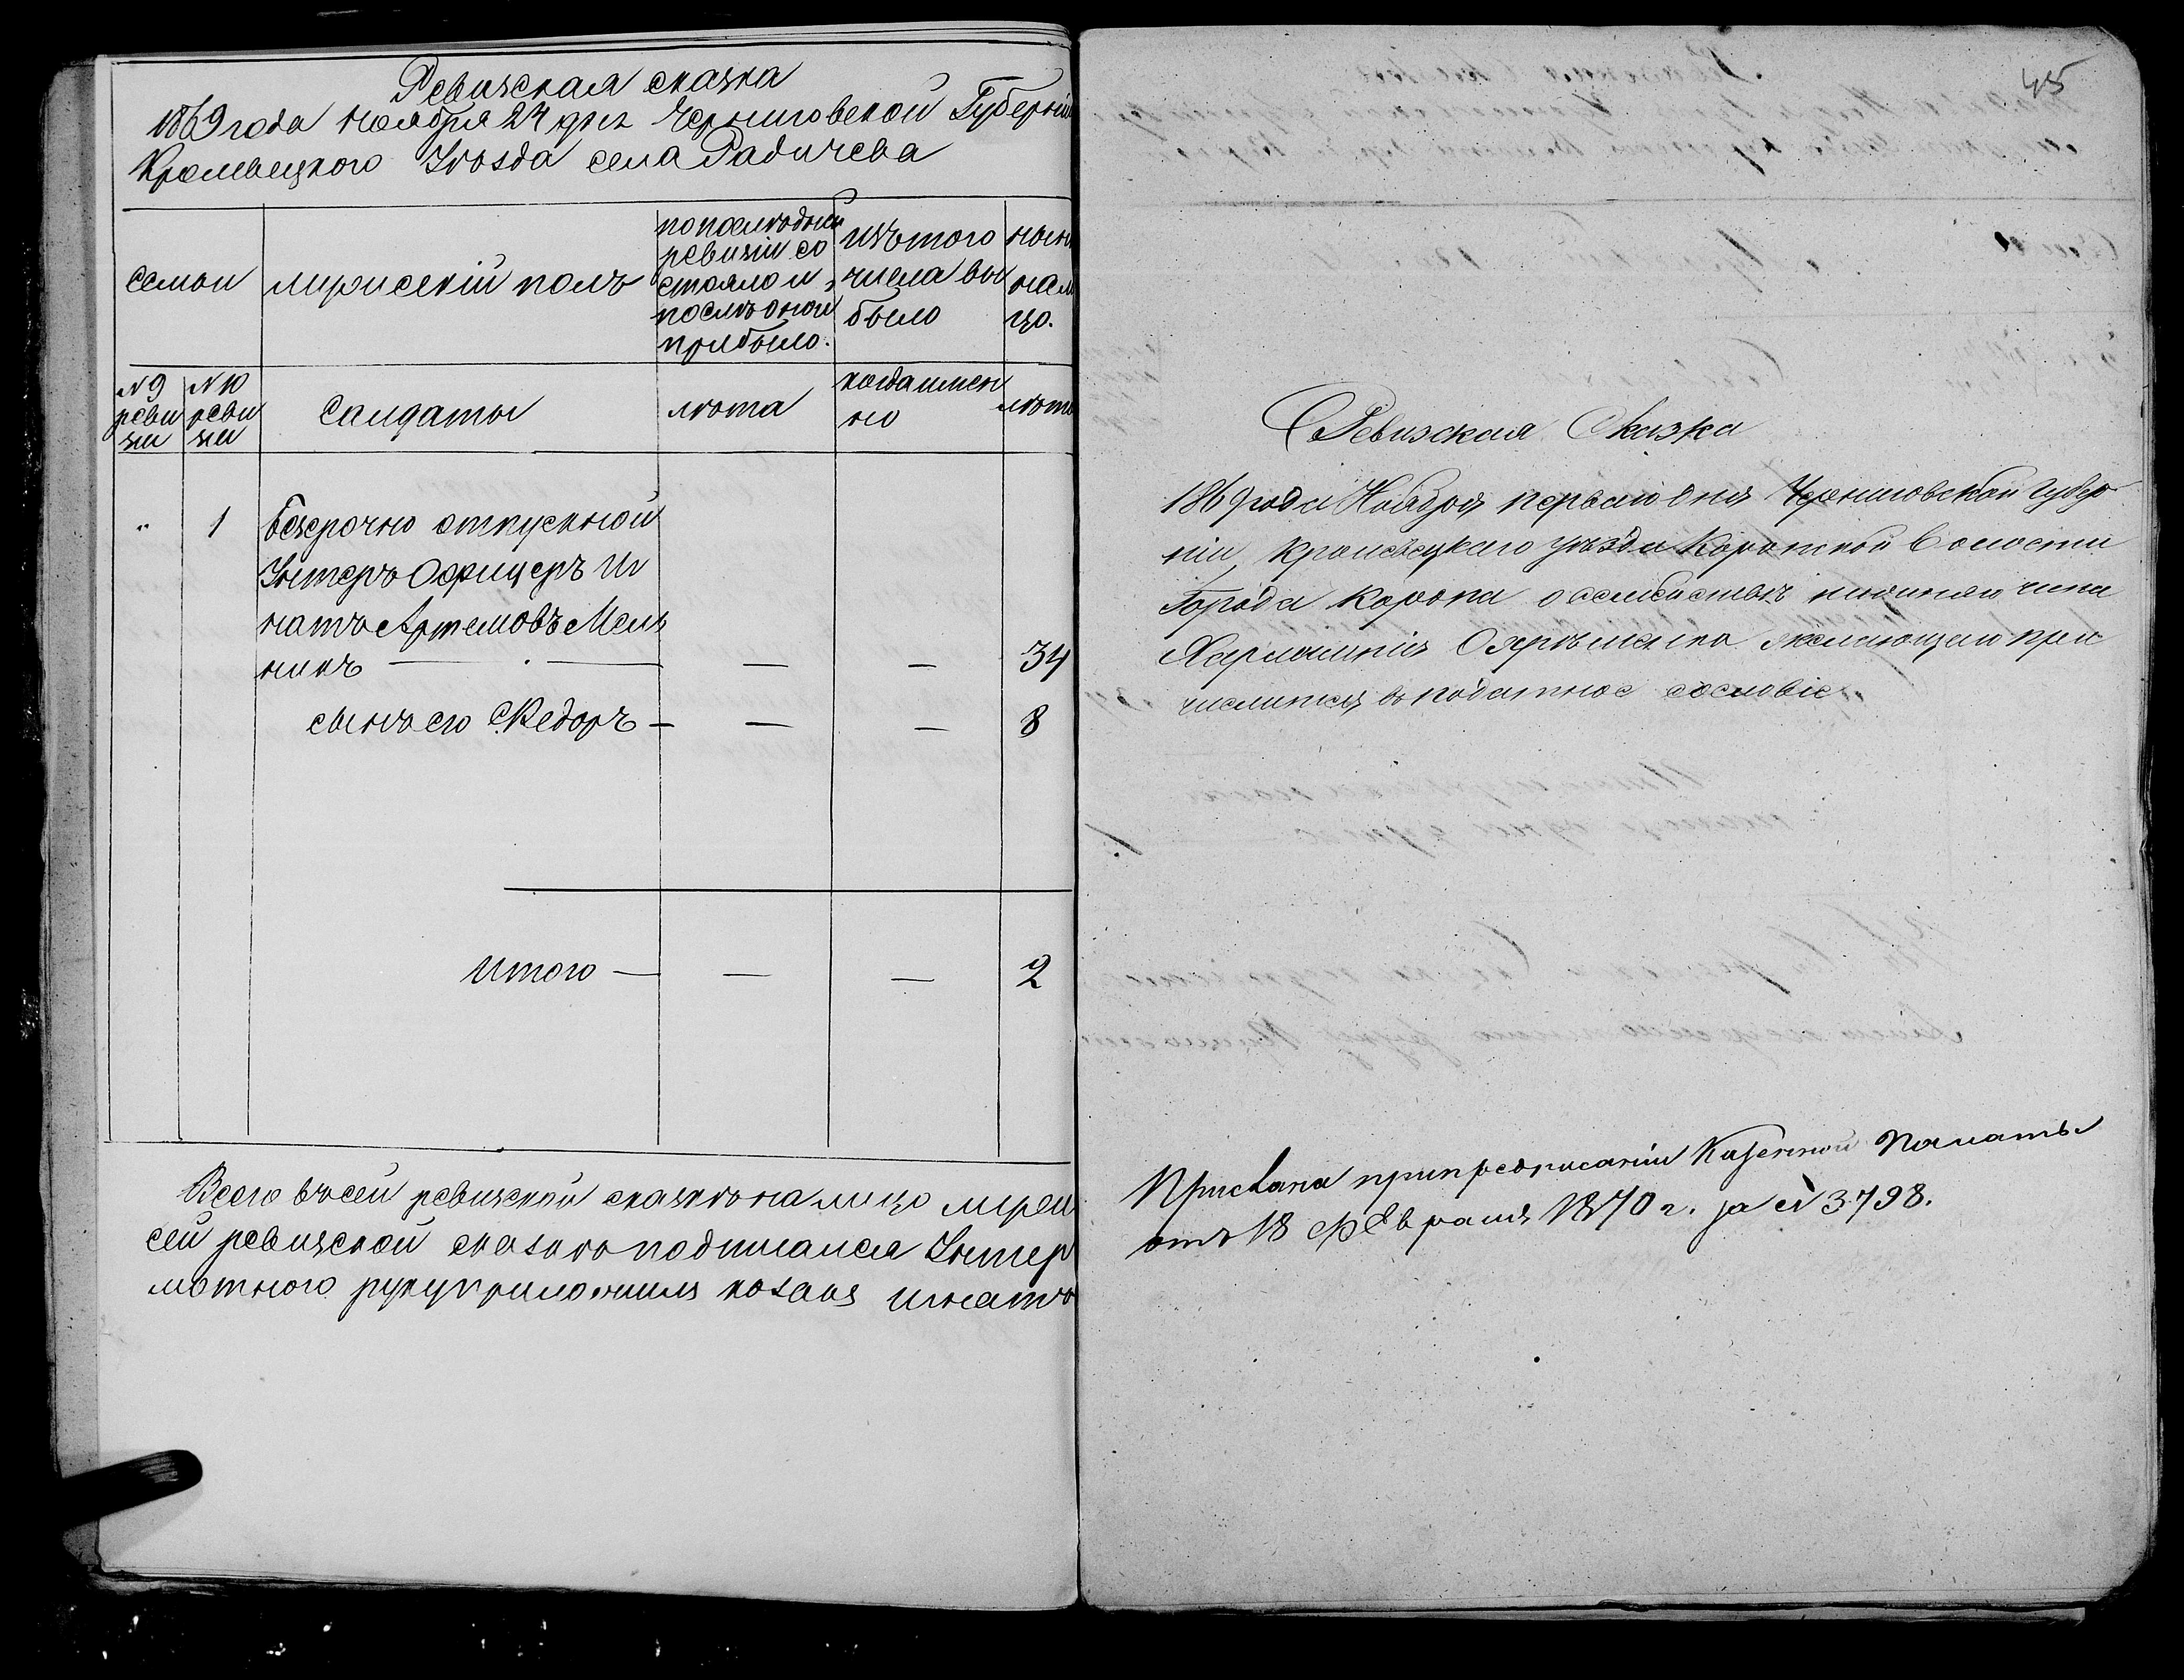 Ревизская сказка
1869 года ноября 24 дня Черниговской Губерніи
Кролевецкого Уѣзда села Радичева
семьи
мужескій полъ
по послѣдней
ревизіи со
стояло и
послѣ оной
прибыло.
изъ того
числа вы
было
нын
нали
цо.
N 9
реви
зіи
N 10
реви
зіи
Салдаты
лѣта
когда имен
но
лѣта
„ 1 Безсрочно отпускной
Унтеръ Офицеръ Иг
натъ Артемовъ Мель
никъ — — — 34
сынъ его Ѳедоръ — — — 8
Итого — — — 2
Всего въ сей ревизской сказкѣ на лицо
сей ревизской сказкѣ подписался Унтер
мотного руку приложилъ козакъ Игнатъ
45
Ревизская Сказка
1869 года Ноября первого дня Черниговской губер
ніи, Кролевецкаго уѣзда Коропской Волости
Города Коропа о семействѣ нижняго чина
желающаго при
числится въ податное сословіе
Прислана при предписаніи Казенной Палаты
отъ 18 Февраля 1870 г. за № 3798.